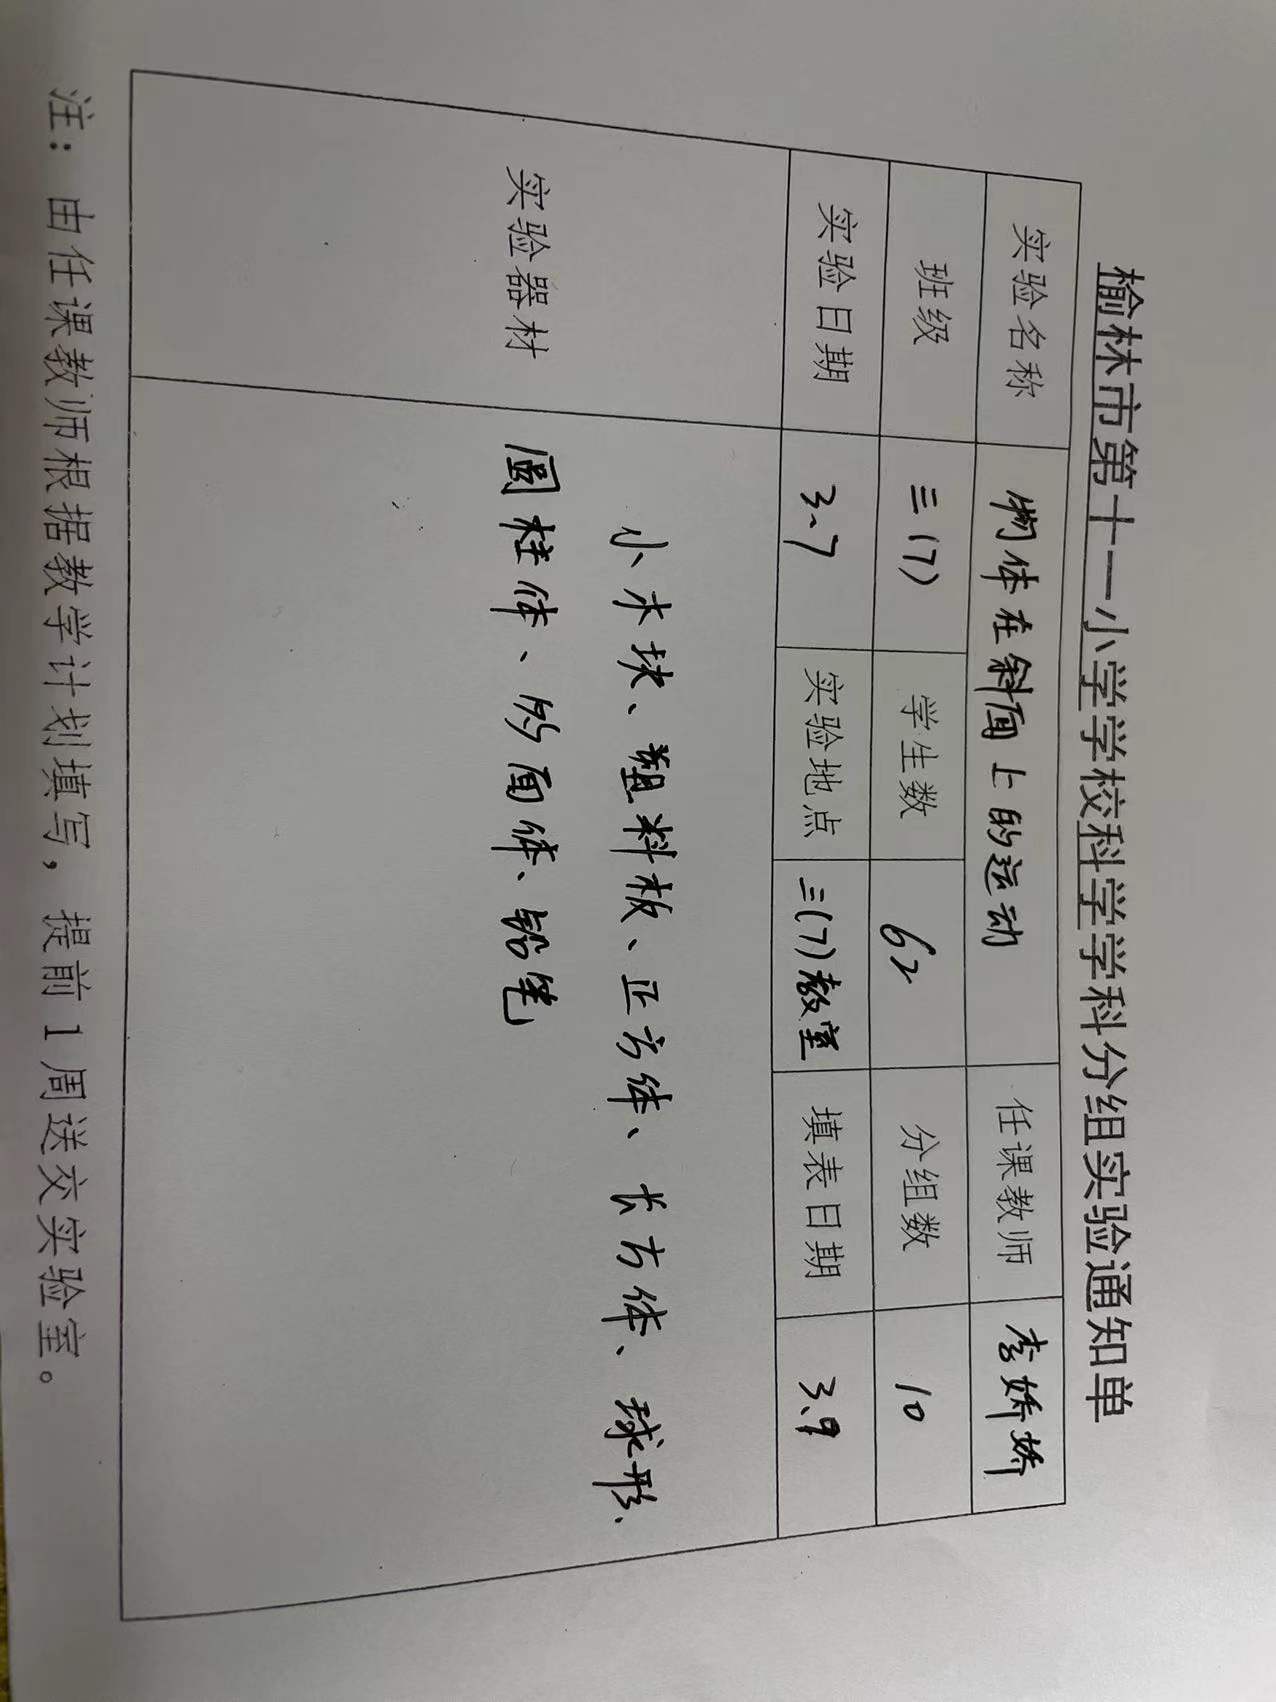 榆林市第十一小学学校科学学科分组实验通知单
实验名称 物体在斜面上的运动 任课教师 李娇娇
班级 三(7) 学生数 62 分组数 10
实验日期 3、7 实验地点 三(7)教室 填表日期 3、9
实验器材
小木块、塑料板、正方体、长方体、球形、
圆柱体、多面体、铅笔
注：由任课教师根据教学计划填写，提前1周送交实验室。